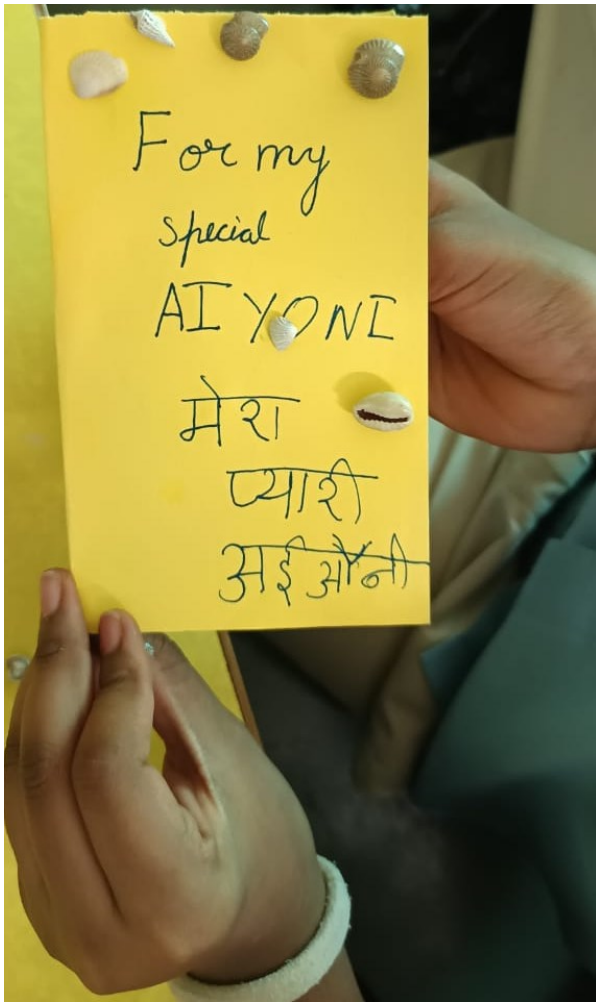 For my
special
AIYONI
मेरा
प्यारी
अईऔनी